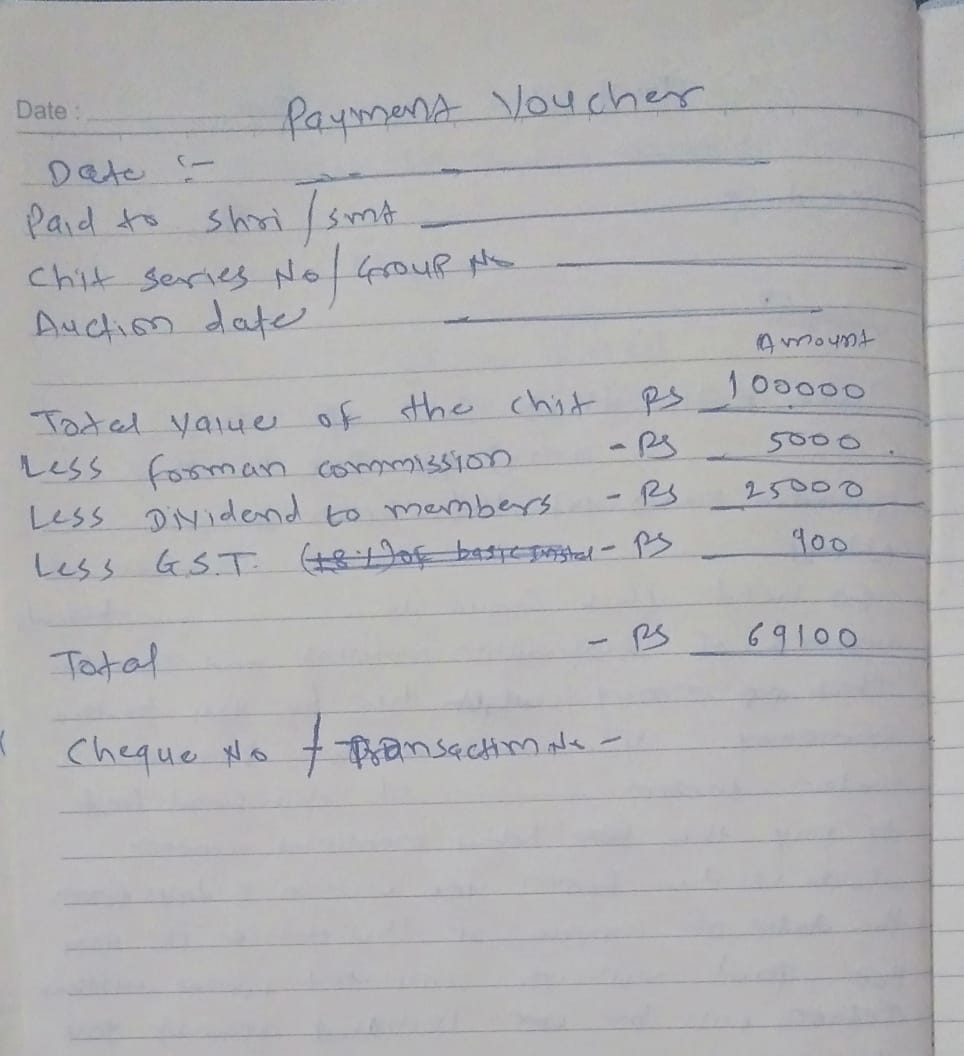 Date :
Payment Voucher
Date :-
Paid to shri / smt
Chit series No / Group No
Auction date
Amount
Total value of the chit Rs 100000
Less forman commission - Rs 5000
Less Dividend to members - Rs 25000
Less G.S.T. (18%) of basic instal - Rs 900
Total - Rs 69100
Cheque No / Transaction No -